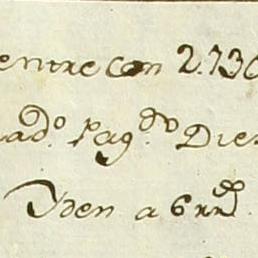 entre con 2.730
ad.º Pag.do Die
Yden a 6 rr.s